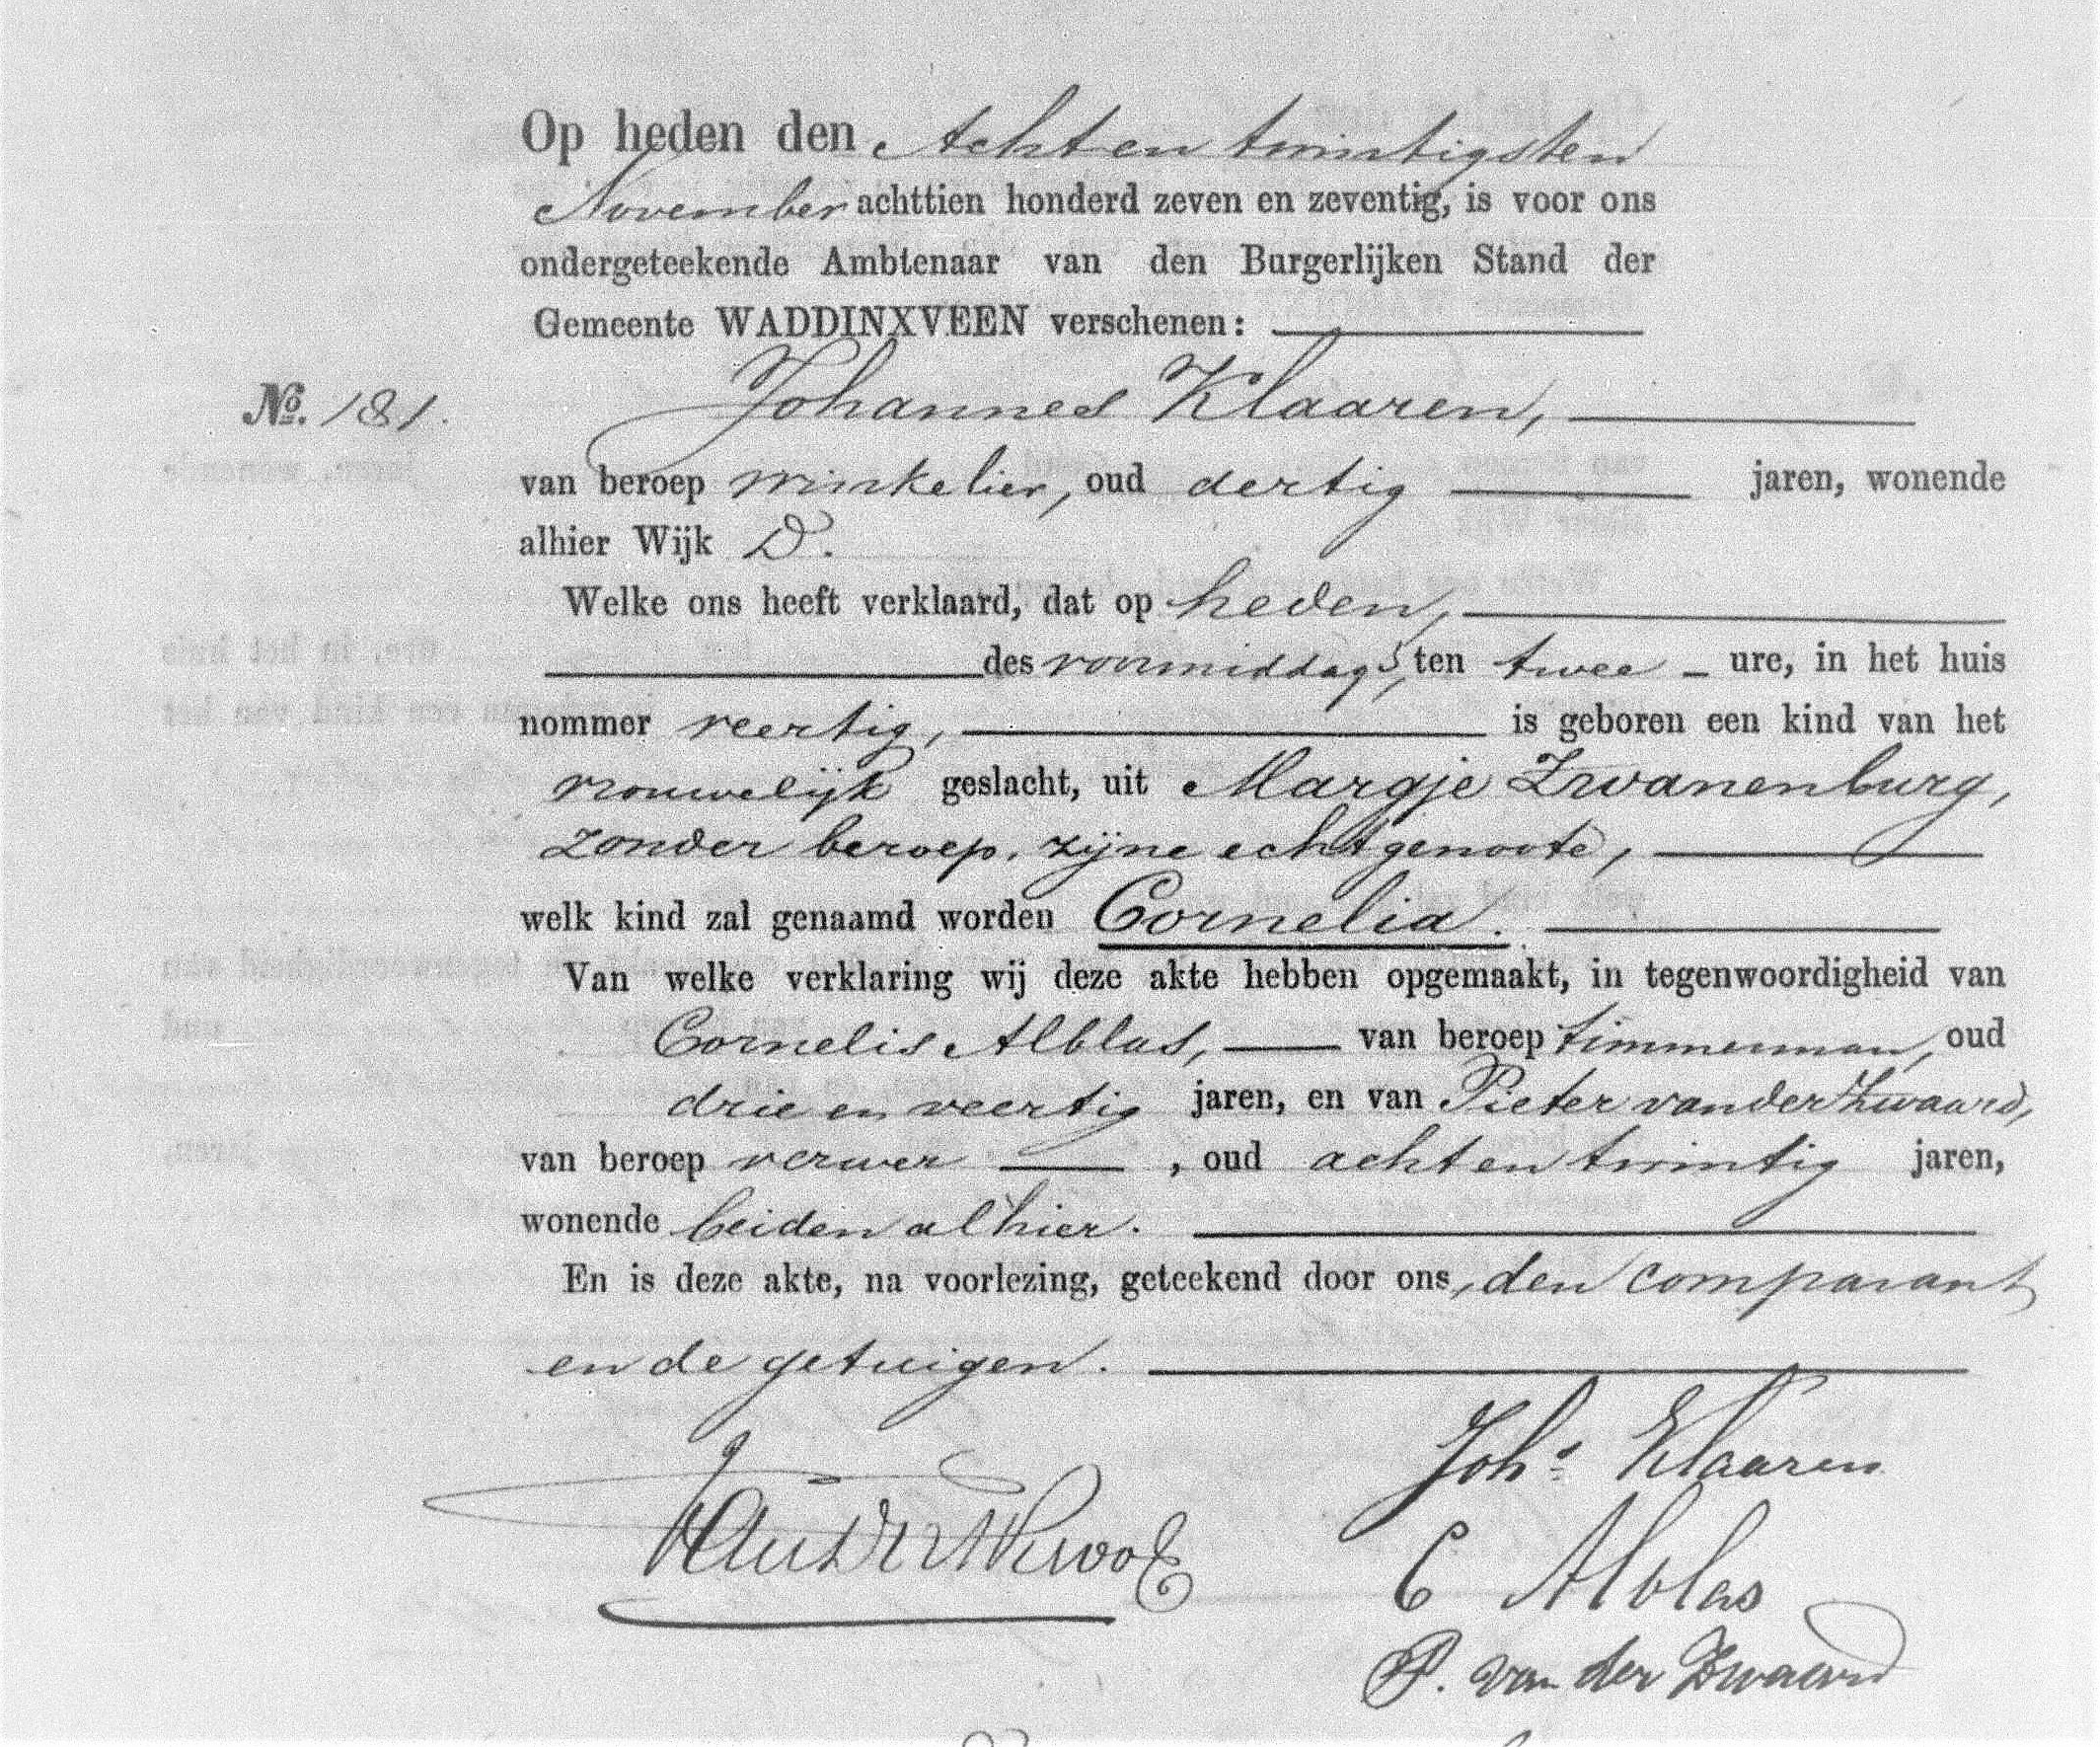 Op heden den Acht en twintigsten
November achttien honderd zeven en zeventig, is voor ons
ondergeteekende Ambtenaar van den Burgerlijken Stand der
Gemeente WADDINXVEEN verschenen:
No. 181. Johannes Klaaren,
van beroep winkelier, oud dertig jaren, wonende
alhier Wijk D.
Welke ons heeft verklaard, dat op heden,
des voormiddags, ten twee ure, in het huis
nommer veertig, is geboren een kind van het
vrouwelijk geslacht, uit Margje Zwanenburg,
zonder beroep, zijne echtgenoote,
welk kind zal genaamd worden Cornelia.
Van welke verklaring wij deze akte hebben opgemaakt, in tegenwoordigheid van
Cornelis Alblas, van beroep timmerman, oud
drie en veertig jaren, en van Pieter van der Zwaard,
van beroep verwer, oud acht en twintig jaren,
wonende beiden alhier.
En is deze akte, na voorlezing, geteekend door ons, den comparant
en de getuigen.
Johs Klaaren
C Alblas
P. van der Zwaard